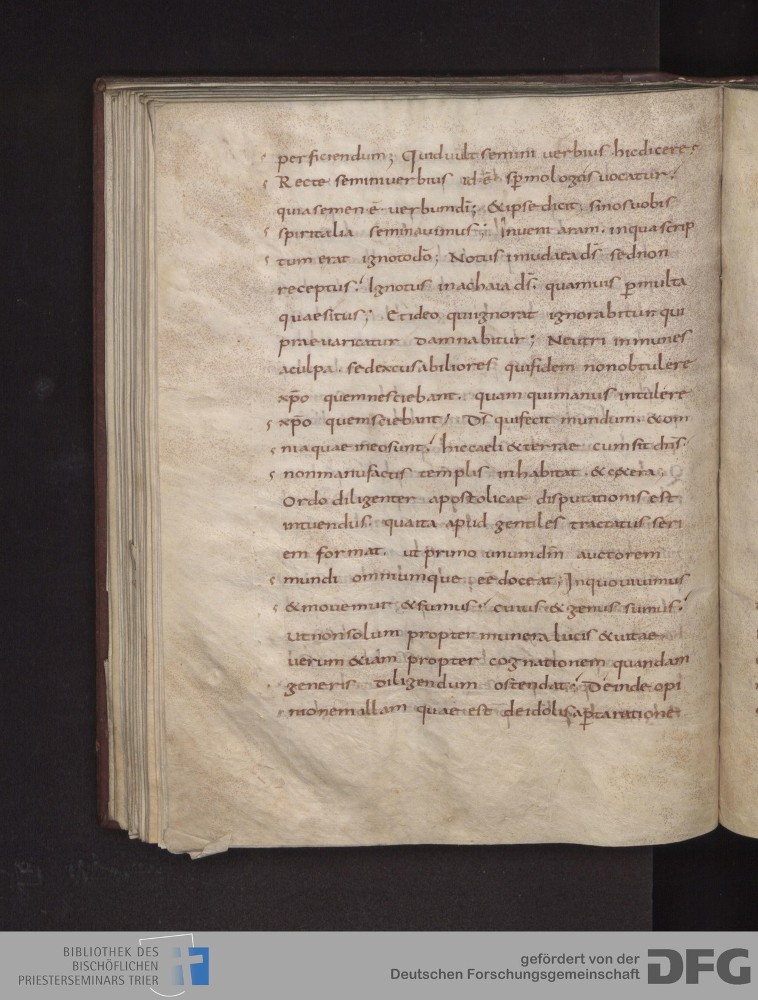 perficiendum; Quid uult seminiuerbius hic dicere;
Recte seminiuerbius id ē spmologos uocatur.
quia semen ē uerbum dī; & ipse dicit. si nos uobis
spiritalia seminauimus; Inueni aram. in qua scrip
tum erat ignoto dō; Notus in iudaea d̄s sed non
receptus. Ignotus in achaia d̄s. quamuis p multa
quaesitus; Et ideo qui ignorat ignorabitur qui
praeuaricatur damnabitur; Neutri inmunes
a culpa. sed excusabiliores qui fidem non obtulere
xp̄o quem nesciebant. quam qui manus intulere
xp̄o quem sciebant; D̄s qui fecit mundum. & om
nia quae in eo sunt. hic caeli & terrae cum sit dn̄s.
non manufactis templis inhabitat. & cetera;
Ordo diligenter apostolicae disputationis est
intuendus. qua ita apud gentiles tractatus seri
em format. ut primo unum dm̄ auctorem
mundi omniumque eē doceat; In quo uiuimus
& mouemur & sumus. cuius & genus sumus.
Ut non solum propter munera lucis & uitae
uerum &iam propter cognationem quandam
generis diligendum ostendat. Deinde opi
nionem illam quae est de idolis aperta ratione
BIBLIOTHEK DES
BISCHÖFLICHEN
PRIESTERSEMINARS TRIER
gefördert von der
Deutschen Forschungsgemeinschaft
DFG